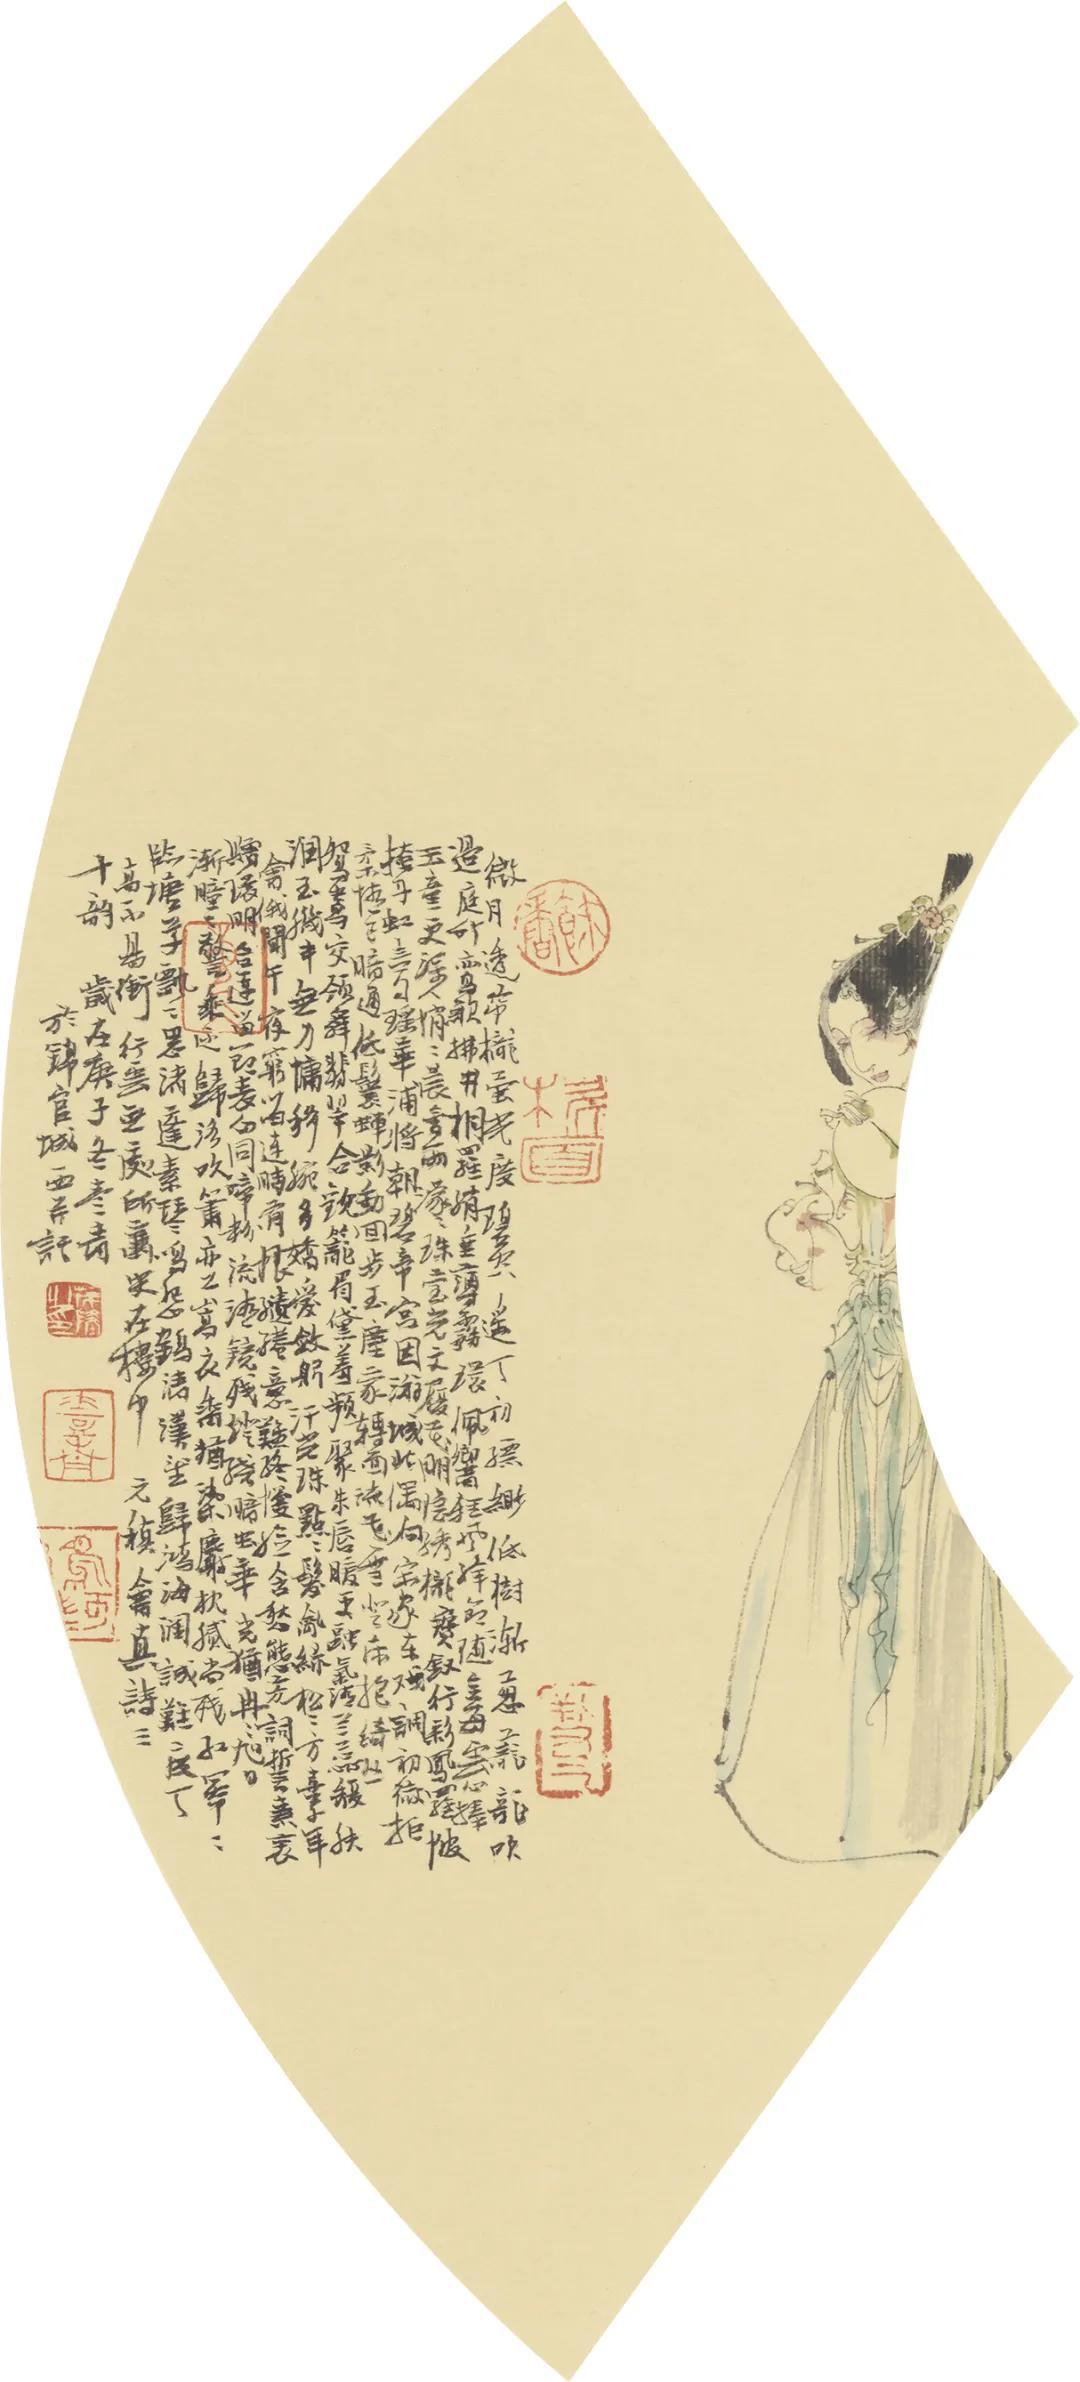 微月透帘櫳螢光度碧空遥天初縹緲低樹漸蔥蘢龍吹
過庭竹鸾歌拂井桐羅綃垂薄霧環佩響輕風絳節随金母雲心捧
玉童更深人悄〻晨會雨濛〻珠瑩光文履花明隐绣櫳寶釵行彩鳳羅帔
掩丹虹言自瑶華浦將朝碧帝宫因游城北偶向宋家东戏調初微拒
柔情已暗通低鬟蟬影動回步玉塵蒙轉面流花雪登床抱綺丛
鴛鴦交頸舞翡翠合歡籠眉黛羞頻聚朱唇暖更融氣清兰蕊馥肤
润玉機丰無力慵移腕多嬌愛斂躬汗光珠點〻髮亂綠松〻方喜千年
會俄聞午夜窮留連時有限繾綣意難終慢臉含愁態芳詞誓素衷
贈環明合運留結表心同啼粉流清鏡残燈繞暗虫華光猶冉〻旭日
漸曈〻警乘还歸洛吹簫亦上嵩衣香猶染麝枕膩尚残红冪〻
臨塘草飘〻思渚蓬素琴鳴怨鶴清漢望歸鴻海闊誠難度天
高不易衝行雲無處所蕭史在樓中 元稹會真詩三
十韵 歲在庚子冬
於錦官城西 記